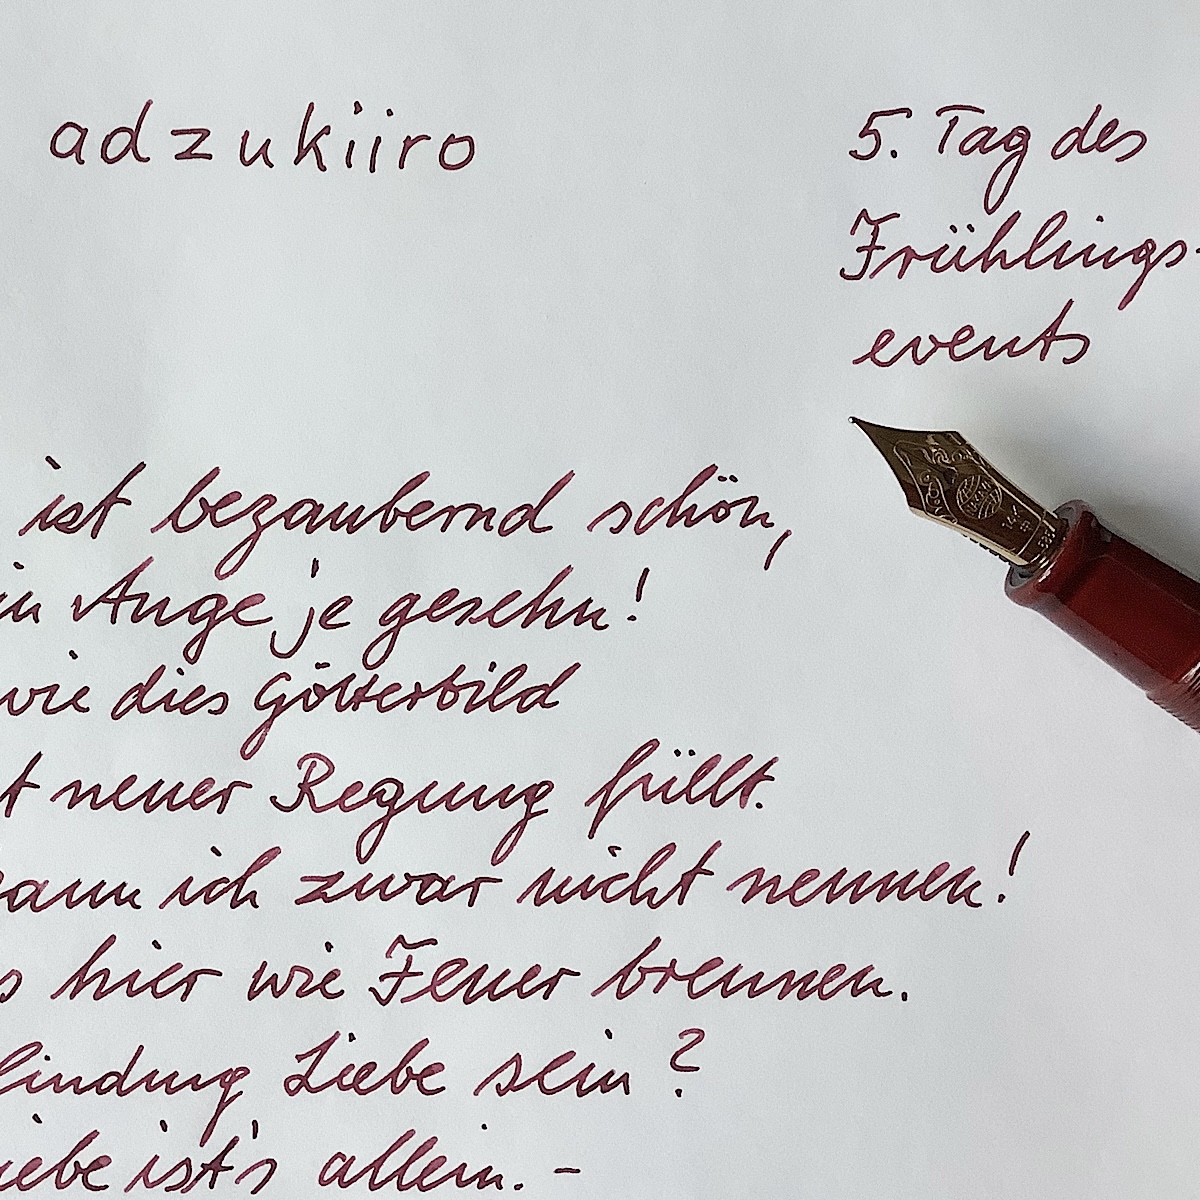 adzukiiro
5. Tag des
Frühlings-
events
ist bezaubernd schön,
Auge je gesehn!
wie dies Götterbild
neuer Regung füllt.
ich zwar nicht nennen!
hier wie Feuer brennen.
Liebe sein?
ist's allein. -
14K
585